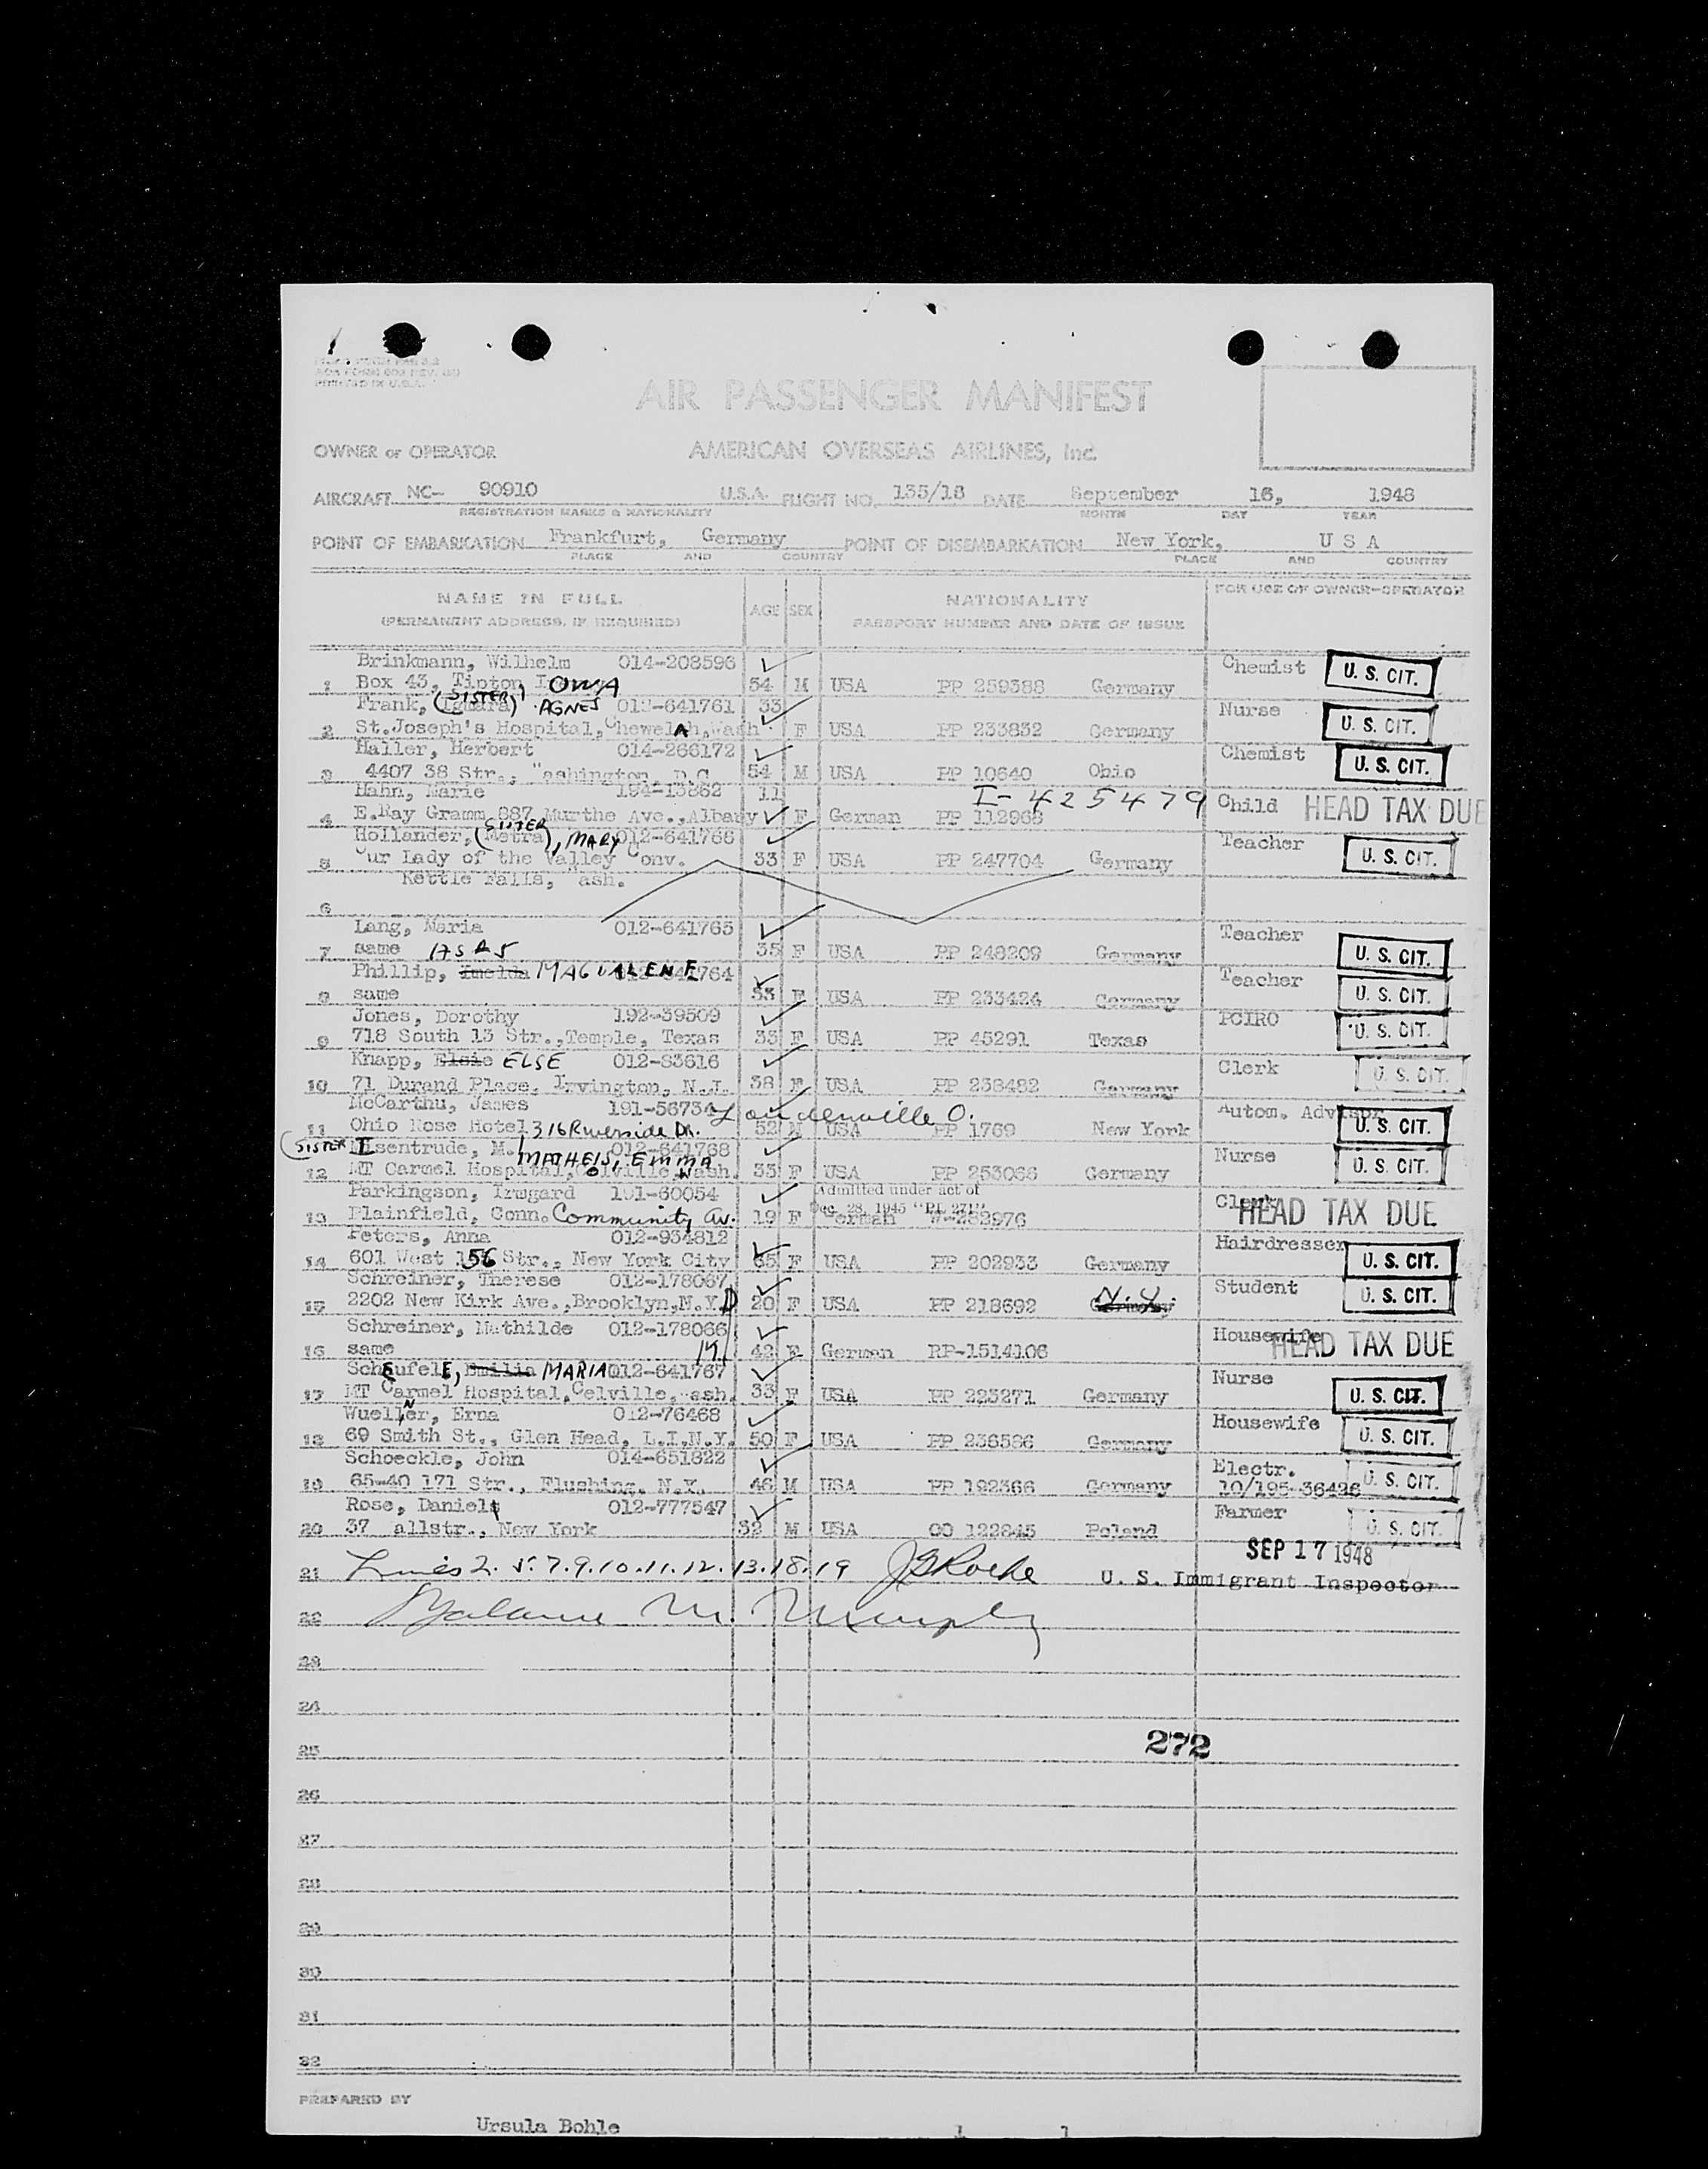 AOA FORM 803 REV.
PRINTED IN U.S.A.
AIR PASSENGER MANIFEST
OWNER or OPERATOR AMERICAN OVERSEAS AIRLINES, Inc.
AIRCRAFT NC- 90910 U.S.A. FLIGHT NO. 135/18 DATE September 16, 1948
REGISTRATION MARKS & NATIONALITY MONTH DAY YEAR
POINT OF EMBARKATION Frankfurt, Germany POINT OF DISEMBARKATION New York, U S A
PLACE AND COUNTRY PLACE AND COUNTRY
NAME IN FULL AGE SEX NATIONALITY FOR USE OF OWNER-OPERATOR
(PERMANENT ADDRESS, IF REQUIRED) PASSPORT NUMBER AND DATE OF ISSUE
Brinkmann, Wilhelm 014-208596 Chemist U. S. CIT.
1 Box 43, Tipton OWA 54 M USA PP 259388 Germany
Frank, (SISTER) AGNES 012-641761 33 Nurse U. S. CIT.
2 St.Joseph's Hospital, ChewelAh, Wash F USA PP 233832 Germany
Haller, Herbert 014-266172 Chemist U. S. CIT.
3 4407 38 Str., Washington, D.C. 54 M USA PP 10640 Ohio
Hahn, Marie 194-13862 11 I-425479 Child HEAD TAX DUE
4 E.Ray Gramm 887 Murthe Ave.,Albany F German PP 112968
Hollander, (SISTER Metra), MARY 012-641766 Teacher U. S. CIT.
5 Our Lady of the Valley Conv. 33 F USA PP 247704 Germany
Kettle Falls, ash.
6
Lang, Maria 012-641765 Teacher U. S. CIT.
7 same AS A 5 35 F USA PP 248209 Germany
Phillip, Imelda MAGDALENE 641764 Teacher U. S. CIT.
8 same 33 F USA PP 233424 Germany
Jones, Dorothy 192-39509 PCIRO U. S. CIT.
9 718 South 13 Str.,Temple, Texas 33 F USA PP 45291 Texas
Knapp, Elsie ELSE 012-83616 Clerk U. S. CIT.
10 71 Durand Place, Irvington, N.J. 38 F USA PP 238482 Germany
McCarthu, James 191-56734 Loudenville O. Autom. Advisor U. S. CIT.
11 Ohio Rose Hotel 316 Riverside Dr. 52 M USA PP 1769 New York
(SISTER Isentrude, M. 012-641768 Nurse U. S. CIT.
MATHEIS, EMMA
12 MT Carmel Hospital, Colville, Wash. 33 F USA PP 253066 Germany
Parkingson, Irmgard 191-60054 Admitted under act of Clerk HEAD TAX DUE
Dec. 28, 1945 "PL 271"
13 Plainfield, Conn. Community Av. 19 F German 282976
Peters, Anna 012-934812 Hairdresser U. S. CIT.
14 601 West 156 Str., New York City 65 F USA PP 202933 Germany
Schreiner, Therese 012-178067 Student U. S. CIT.
15 2202 New Kirk Ave.,Brooklyn,N.Y. D 20 F USA PP 218692 Germany N.Y.
Schreiner, Mathilde 012-178066 Housewife HEAD TAX DUE
16 same 42 F German RP-1514106
SchEufelE, Emilia MARIA 012-641767 Nurse U. S. CIT.
17 MT Carmel Hospital, Colville, ash. 33 F USA PP 223271 Germany
WuellNer, Erna 012-76468 Housewife U. S. CIT.
18 69 Smith St., Glen Head, L.I.N.Y. 50 F USA PP 236586 Germany
Schoeckle, John 014-651822 Electr. U. S. CIT.
19 65-40 171 Str., Flushing, N.Y. 46 M USA PP 192366 Germany 10/195 36426
Rose, Daniel 012-777547 Farmer U. S. CIT.
20 37 allstr., New York 32 M USA 00 122845 Poland
SEP 17 1948
21 Lines 2. 5. 7.9.10.11.12.13.18.19 JGRoche U. S. Immigrant Inspector
22 M. Murphy
23
24
25 272
26
27
28
29
30
31
32
PREPARED BY
Ursula Bohle 1 1